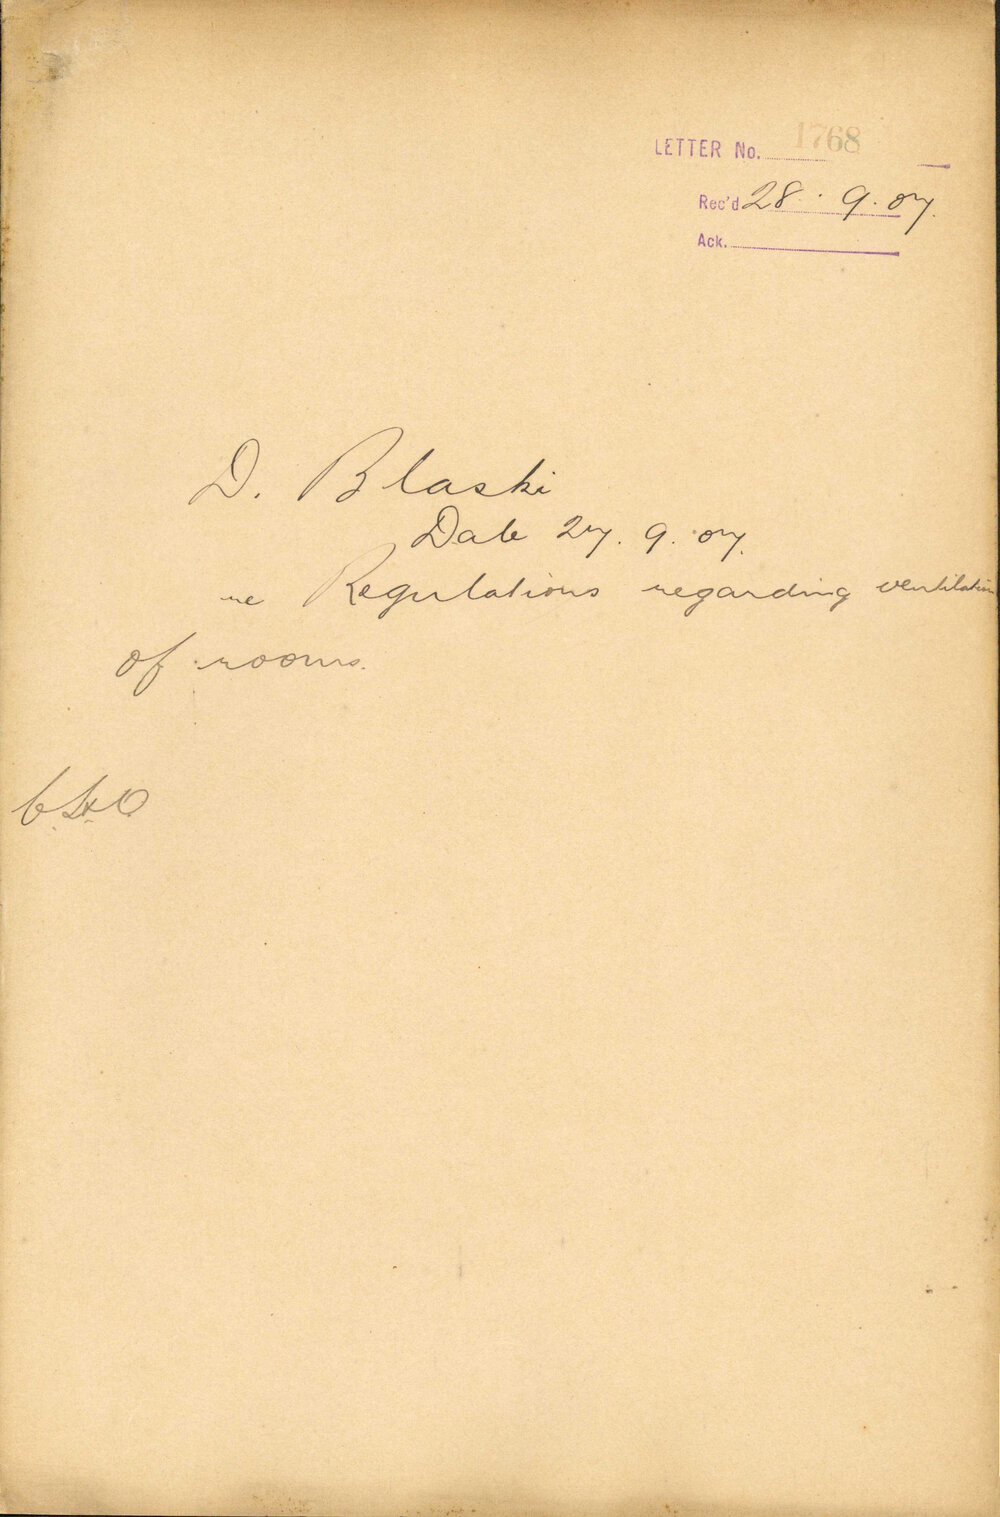 LETTER No. 1768
Rec'd 28. 9. 07.
Ack.
D. Blaski
Date 27. 9. 07.
re Regulations regarding ventilation
of rooms.